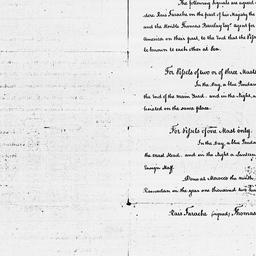 The following Signals are agreed
dore Rais Farache on the part of his Majesty the
and the Honble Thomas Barclay Esqr agent for
America on their part, to the End that the Vessels
be known to each other at Sea.
For Vessels of two or of three Masts
In the Day, a blue Pendant
the End of the Main Yard, and in the Night, a
hoisted on the same place.
For Vessels of one Mast only.
In the Day a blue Pendant
the mast Head, and in the Night a Lantern
Ensign Staff.
Done at Morocco the ninth
Ramadan in the year one thousand two hun
Rais Farache (signed) Thomas